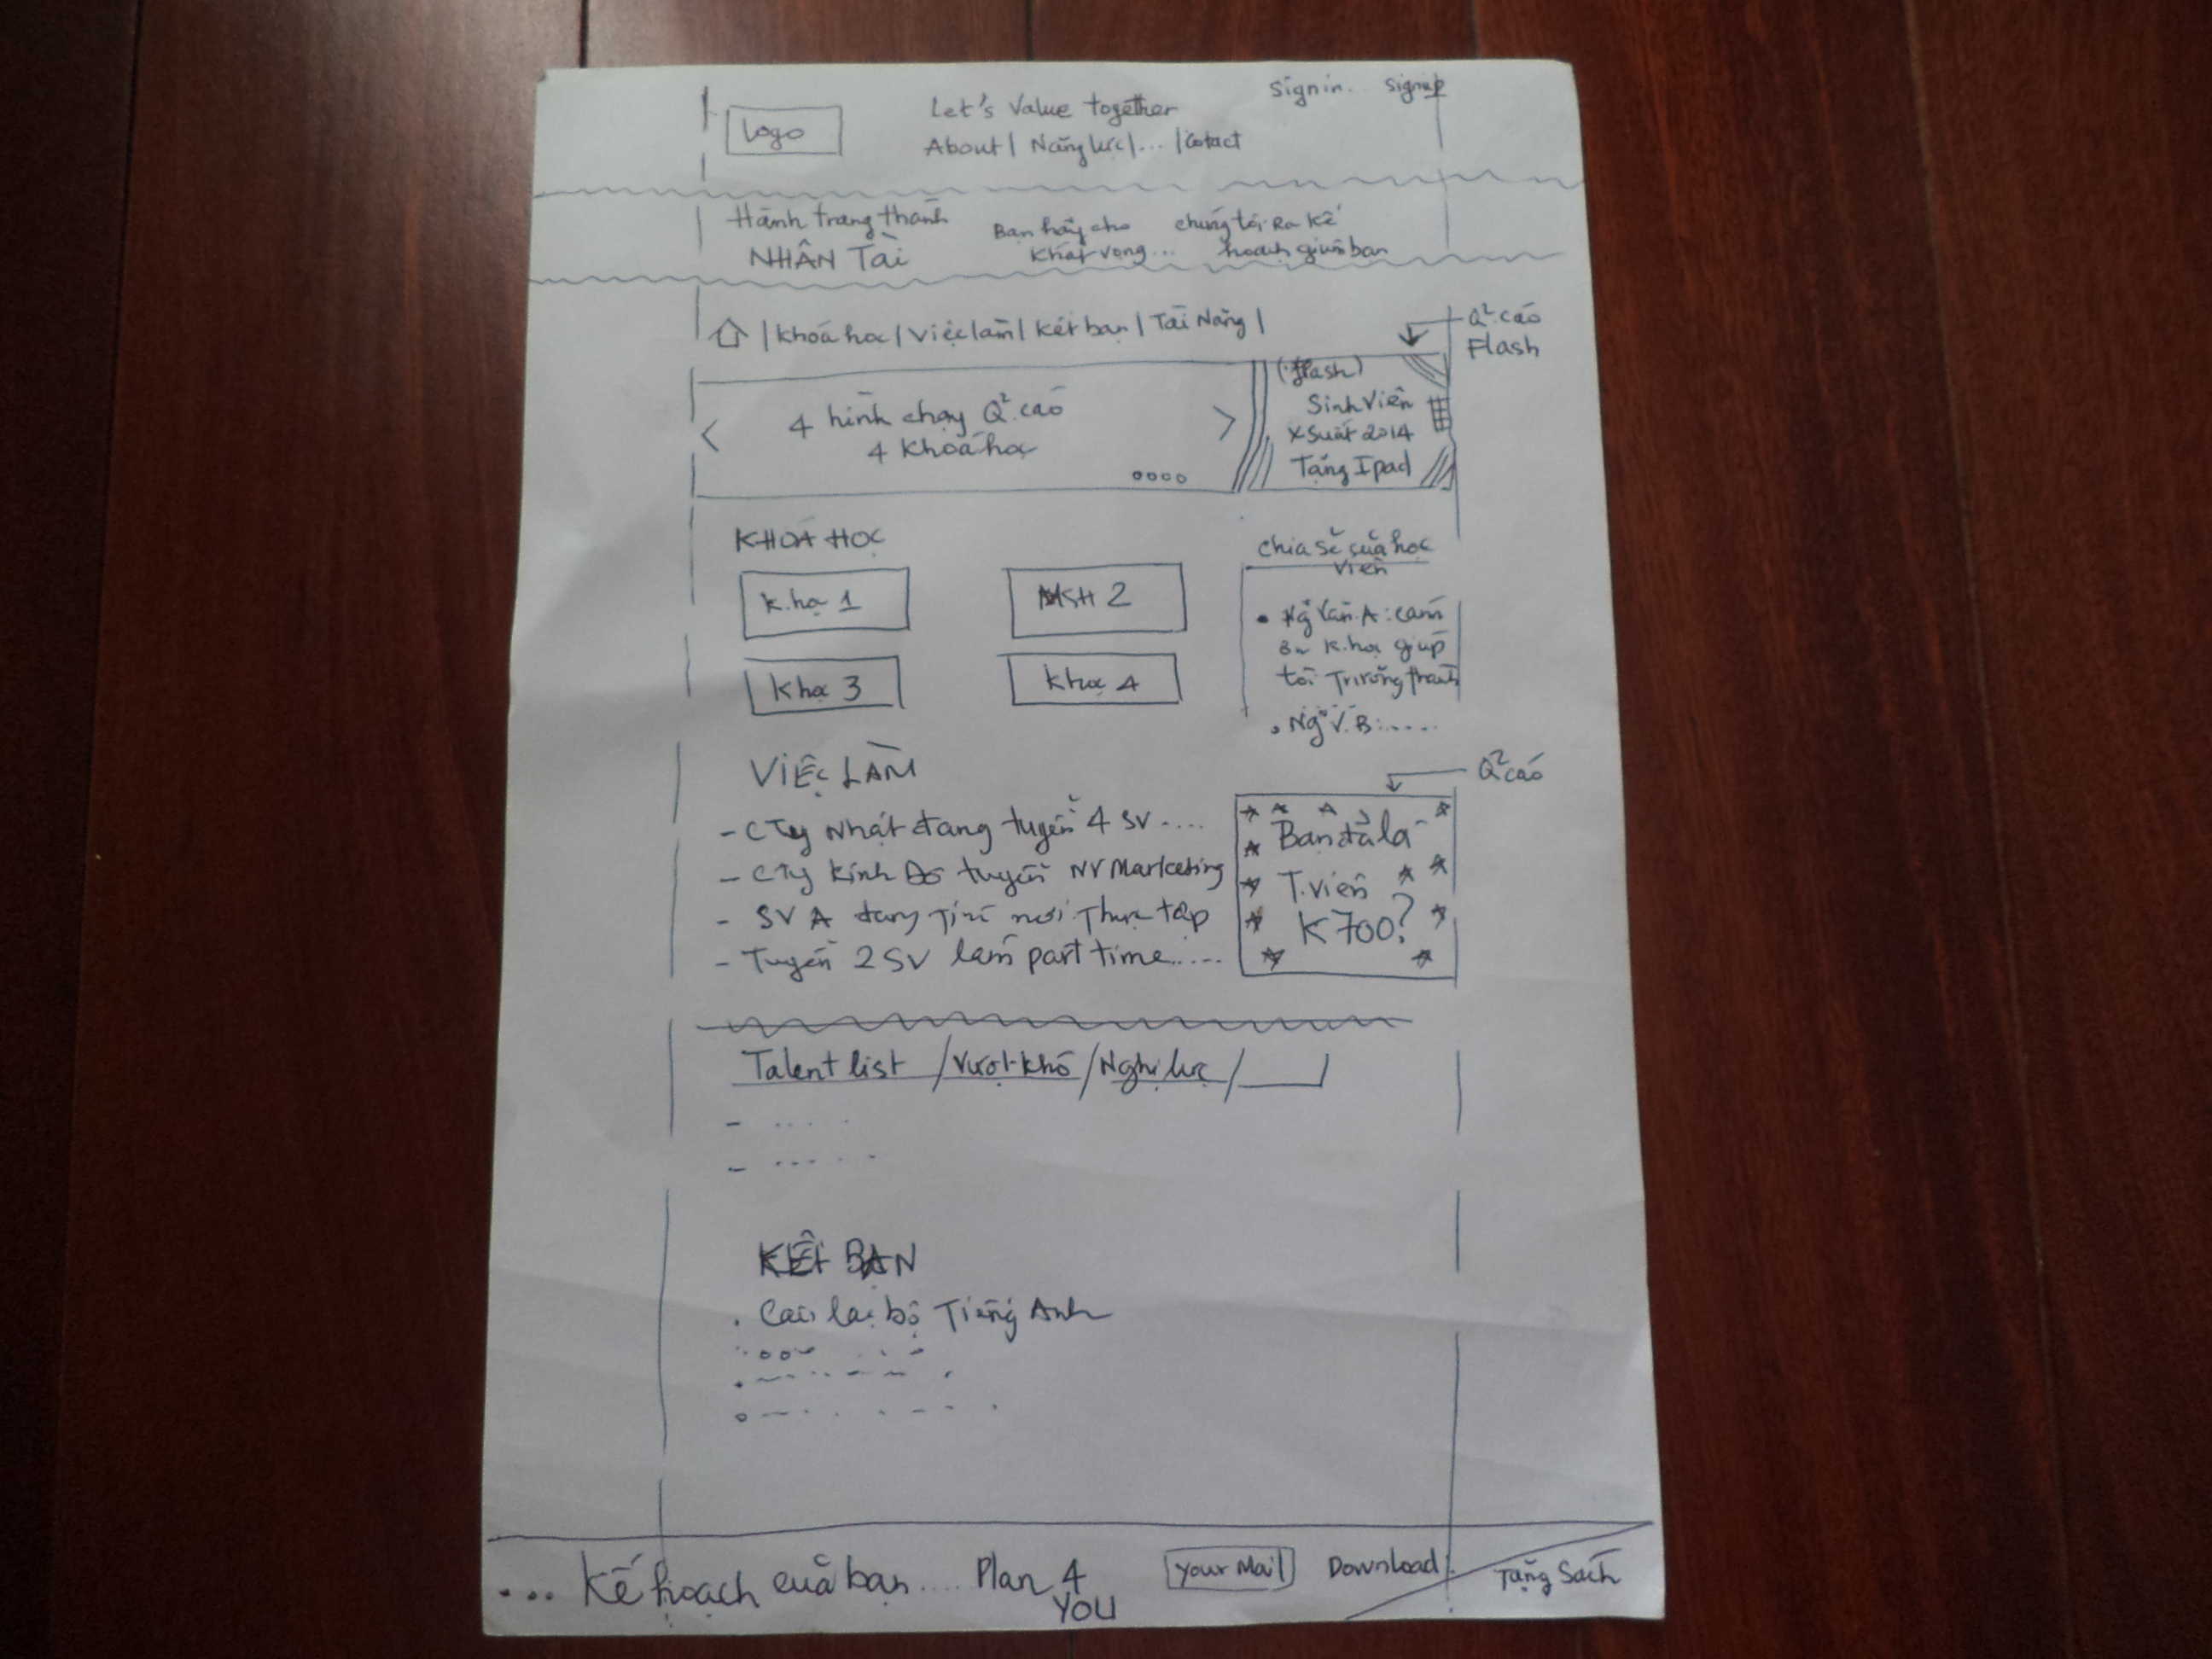 Sign in.. Signup
Logo
Let's Value together
About | Năng lực | ... | Cotact
Hành trang thành
NHÂN Tài
Bạn hãy cho
khát vọng...
chúng tôi Ra kế
hoạch giúp bạn
| khoá học | việc làm | kết bạn | Tài Năng |
Q².cáo
Flash
< 4 hình chạy Q².cáo >
4 khoá học
(flash)
Sinh Viên
X Suất 2014
Tặng Ipad
KHOÁ HỌC
K.học 1
MSH 2
Khọc 3
khọc 4
Chia sẻ của học
viên
• Ng Văn A: cám
ơn k.học giúp
tôi Trưởng thành
• Ng V. B:.....
VIỆC LÀM
- CTy Nhật đang tuyển 4 SV ....
- CTy Kinh Đô tuyển NV Marketing
- SV A đang Tìm nơi Thực tập
- Tuyển 2 SV làm part time.....
Q² cáo
Bạn đã là
T.viên
K700?
Talent list / Vượt khó / Nghị lực /
- ....
- .....
KẾT BẠN
. Câu lạc bộ Tiếng Anh
... Kế hoạch của bạn .... Plan 4
YOU
Your Mail
Download
Tặng Sách